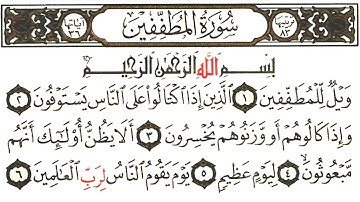 ترتيبها ٨٣ سُورَةُ الْمُطَفِّفِينَ آياتها ٣٦
بِسْمِ اللَّهِ الرَّحْمَٰنِ الرَّحِيمِ
وَيْلٌ لِّلْمُطَفِّفِينَ ١ الَّذِينَ إِذَا اكْتَالُوا عَلَى النَّاسِ يَسْتَوْفُونَ ٢
وَإِذَا كَالُوهُمْ أَو وَّزَنُوهُمْ يُخْسِرُونَ ٣ أَلَا يَظُنُّ أُولَٰئِكَ أَنَّهُم
مَّبْعُوثُونَ ٤ لِيَوْمٍ عَظِيمٍ ٥ يَوْمَ يَقُومُ النَّاسُ لِرَبِّ الْعَالَمِينَ ٦